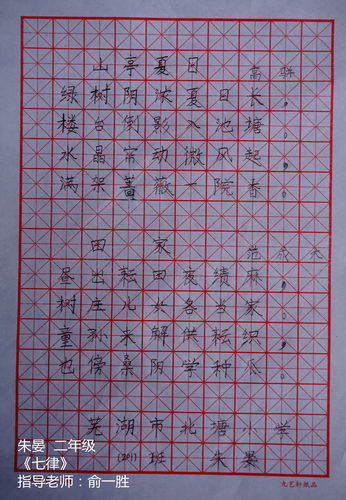 山亭夏日
高骈
绿树阴浓夏日长，
楼台倒影入池塘。
水晶帘动微风起，
满架蔷薇一院香。
田家
范成大
昼出耘田夜绩麻，
树庄儿女各当家。
童孙未解供耘织，
也傍桑阴学种瓜。
芜湖市北塘小学
(201)班 朱晏
朱晏 二年级
《七律》
指导老师：俞一胜
九艺轩纸品